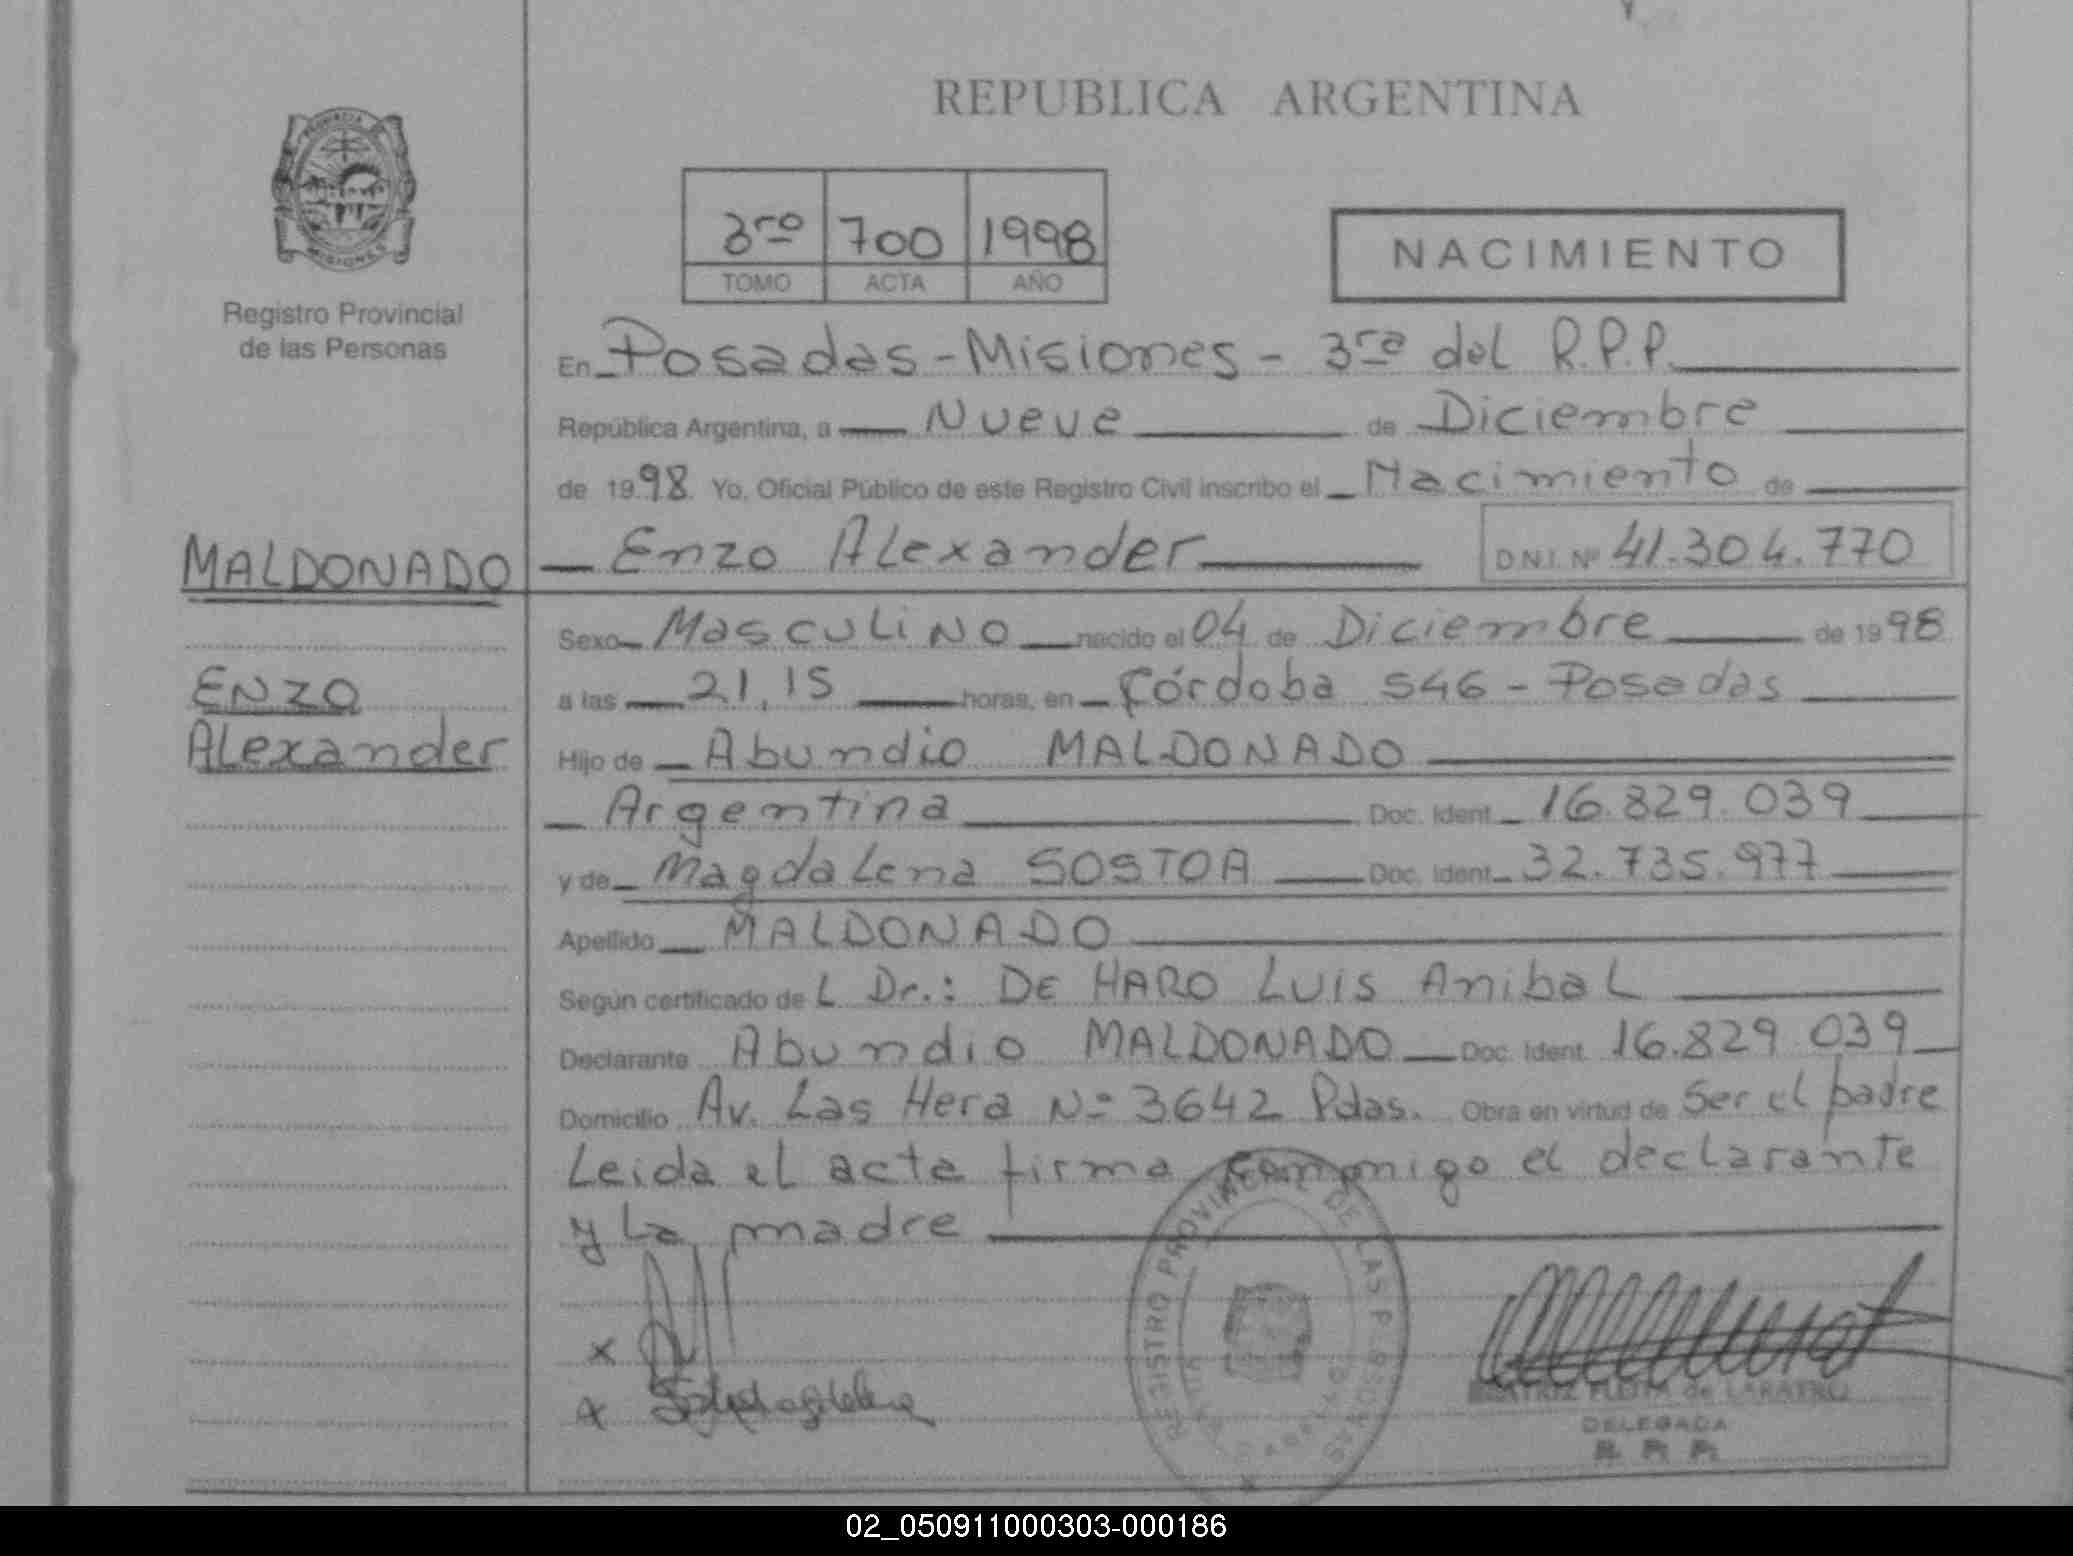 REPUBLICA ARGENTINA
PROVINCIA DE
MISIONES
Registro Provincial
de las Personas
3ro 700 1998
TOMO ACTA AÑO
NACIMIENTO
En Posadas - Misiones - 3ra del R.P.P.
República Argentina, a Nueve de Diciembre
de 1998 Yo, Oficial Público de este Registro Civil inscribo el Nacimiento de
MALDONADO Enzo Alexander D.N.I. Nº 41.304.770
Sexo Masculino nacido el 04 de Diciembre de 1998
Enzo
Alexander
a las 21,15 horas, en Córdoba 546 - Posadas
Hijo de Abundio MALDONADO
Argentina Doc. Ident. 16.829.039
y de Magdalena SOSTOA Doc. Ident. 32.735.977
Apellido MALDONADO
Según certificado de L Dr.: DE HARO LUIS Anibal
Declarante Abundio MALDONADO Doc. Ident. 16.829.039
Domicilio Av. Las Hera Nº 3642 Pdas. Obra en virtud de Ser el padre
Leida el acta firma conmigo el declarante
y la madre
REGISTRO PROVINCIAL DE LAS PERSONAS
x
x
FLEITA de LARATRO
DELEGADA
R. P. P.
02_050911000303-000186